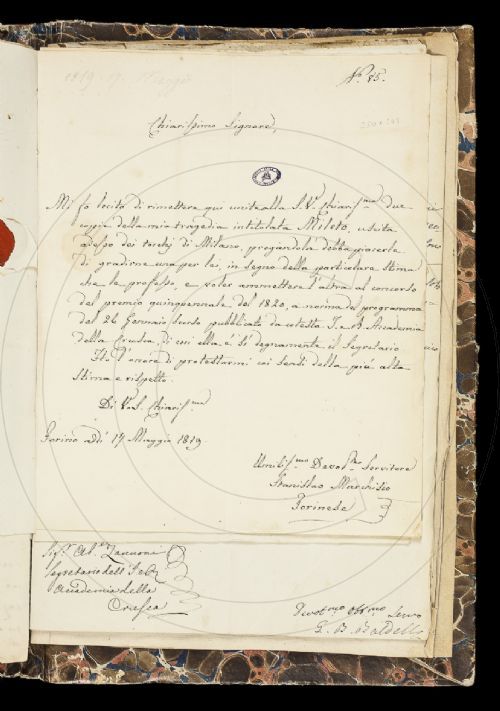 1819 17. Maggio
N.° 85.
Chiarissimo Signore,
Mi fo lecito di rimettere qui unite alla S. V. Chiariss.ma due
copie della mia tragedia intitolata Mileto, uscita
adesso dei torchj di Milano, pregandola debba piacerle
di gradirne una per lei, in segno della particolare stima
che le professo, e voler ammettere l'altra al concorso
del premio quinquennale del 1820, a norma del programma
del 26 Gennaio scorso pubblicato da cotesta I. e R. Accademia
della Crusca, di cui ella è sì degnamente il Segretario
Ho l'onore di protestarmi coi sensi della più alta
stima e rispetto.
Di V. S. Chiariss.ma
Torino addì 17 Maggio 1819
Umiliss.mo Devot.mo Servitore
Stanislao Marchisio
Torinese
Sig.r Ab.e Zannoni
Segretario dell' I. e R.
Accademia della
Crusca
Devot.mo Obb.mo Servo
G. B. Baldelli